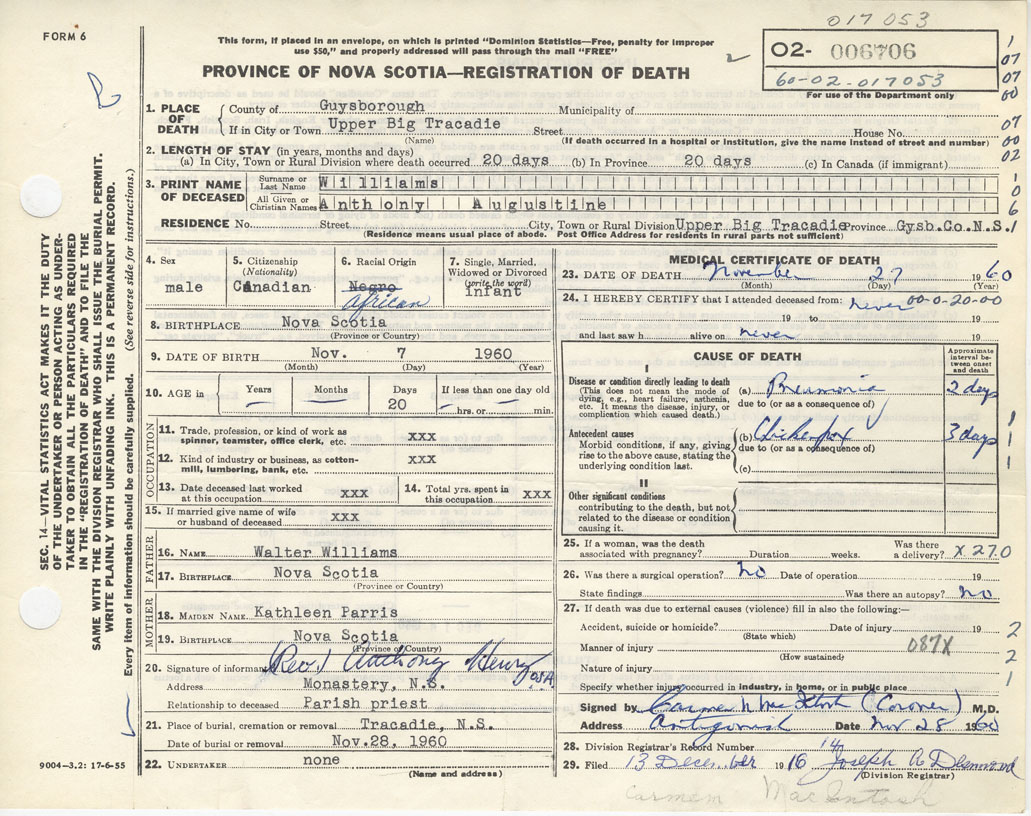 017 053
FORM 6
This form, if placed in an envelope, on which is printed "Dominion Statistics—Free, penalty for improper
use $50," and properly addressed will pass through the mail "FREE"
PROVINCE OF NOVA SCOTIA—REGISTRATION OF DEATH
02- 006706
60-02-017053
For use of the Department only
1
07
07
00
07
00
02
1
0
6
1
1. PLACE OF DEATH
County of Guysborough Municipality of
If in City or Town Upper Big Tracadie Street House No.
(Name) (If death occurred in a hospital or institution, give the name instead of street and number)
2. LENGTH OF STAY (in years, months and days)
(a) In City, Town or Rural Division where death occurred 20 days (b) In Province 20 days (c) In Canada (if immigrant)
3. PRINT NAME OF DECEASED
Surname or Last Name Williams
All Given or Christian Names Anthony Augustine
RESIDENCE No. Street City, Town or Rural Division Upper Big Tracadie Province Gysb.Co.N.S.
(Residence means usual place of abode. Post Office Address for residents in rural parts not sufficient)
4. Sex
male
5. Citizenship (Nationality)
Canadian
6. Racial Origin
Negro
African
7. Single, Married, Widowed or Divorced (write the word)
infant
8. BIRTHPLACE Nova Scotia
(Province or Country)
9. DATE OF BIRTH Nov. 7 1960
(Month) (Day) (Year)
10. AGE in Years Months Days If less than one day old
— — 20 — hrs. or — min.
OCCUPATION
11. Trade, profession, or kind of work as spinner, teamster, office clerk, etc. xxx
12. Kind of industry or business, as cotton-mill, lumbering, bank, etc. xxx
13. Date deceased last worked at this occupation xxx
14. Total yrs. spent in this occupation xxx
15. If married give name of wife or husband of deceased xxx
FATHER
16. NAME Walter Williams
17. BIRTHPLACE Nova Scotia
(Province or Country)
MOTHER
18. MAIDEN NAME Kathleen Parris
19. BIRTHPLACE Nova Scotia
(Province or Country)
20. Signature of informant (Rev.) Anthony Henry OSA
Address Monastery, N.S.
Relationship to deceased Parish priest
21. Place of burial, cremation or removal Tracadie, N.S.
Date of burial or removal Nov.28, 1960
22. UNDERTAKER none
(Name and address)
MEDICAL CERTIFICATE OF DEATH
23. DATE OF DEATH November 27 1960
(Month) (Day) (Year)
24. I HEREBY CERTIFY that I attended deceased from: never 00-0-20-00
19 to 19
and last saw h alive on never 19
CAUSE OF DEATH
Approximate interval between onset and death
I
Disease or condition directly leading to death
(This does not mean the mode of dying, e.g., heart failure, asthenia, etc. It means the disease, injury, or complication which caused death.)
(a) Pneumonia 2 days
due to (or as a consequence of)
Antecedent causes
Morbid conditions, if any, giving rise to the above cause, stating the underlying condition last.
(b) Chickenpox 3 days
due to (or as a consequence of)
(c)
1
1
1
II
Other significant conditions
contributing to the death, but not related to the disease or condition causing it.
25. If a woman, was the death associated with pregnancy? Duration weeks. Was there a delivery? X270
26. Was there a surgical operation? no Date of operation 19
State findings Was there an autopsy? no
27. If death was due to external causes (violence) fill in also the following:—
Accident, suicide or homicide? Date of injury 19
(State which)
Manner of injury 087X
(How sustained)
Nature of injury
2
2
1
Specify whether injury occurred in industry, in home, or in public place
Signed by Carmen N MacIntosh (Coroner) M.D.
Address Antigonish Date Nov 28 1960
28. Division Registrar's Record Number 14
29. Filed 13 December 1916 Joseph A
(Division Registrar)
Carmem MacIntosh
SEC. 14—VITAL STATISTICS ACT MAKES IT THE DUTY
OF THE UNDERTAKER OR PERSON ACTING AS UNDER-
TAKER TO OBTAIN ALL THE PARTICULARS REQUIRED
IN THE "REGISTRATION OF DEATH" AND TO FILE THE
SAME WITH THE DIVISION REGISTRAR WHO SHALL ISSUE THE BURIAL PERMIT.
WRITE PLAINLY WITH UNFADING INK. THIS IS A PERMANENT RECORD.
Every item of information should be carefully supplied. (See reverse side for instructions.)
9004—3.2: 17-6-55